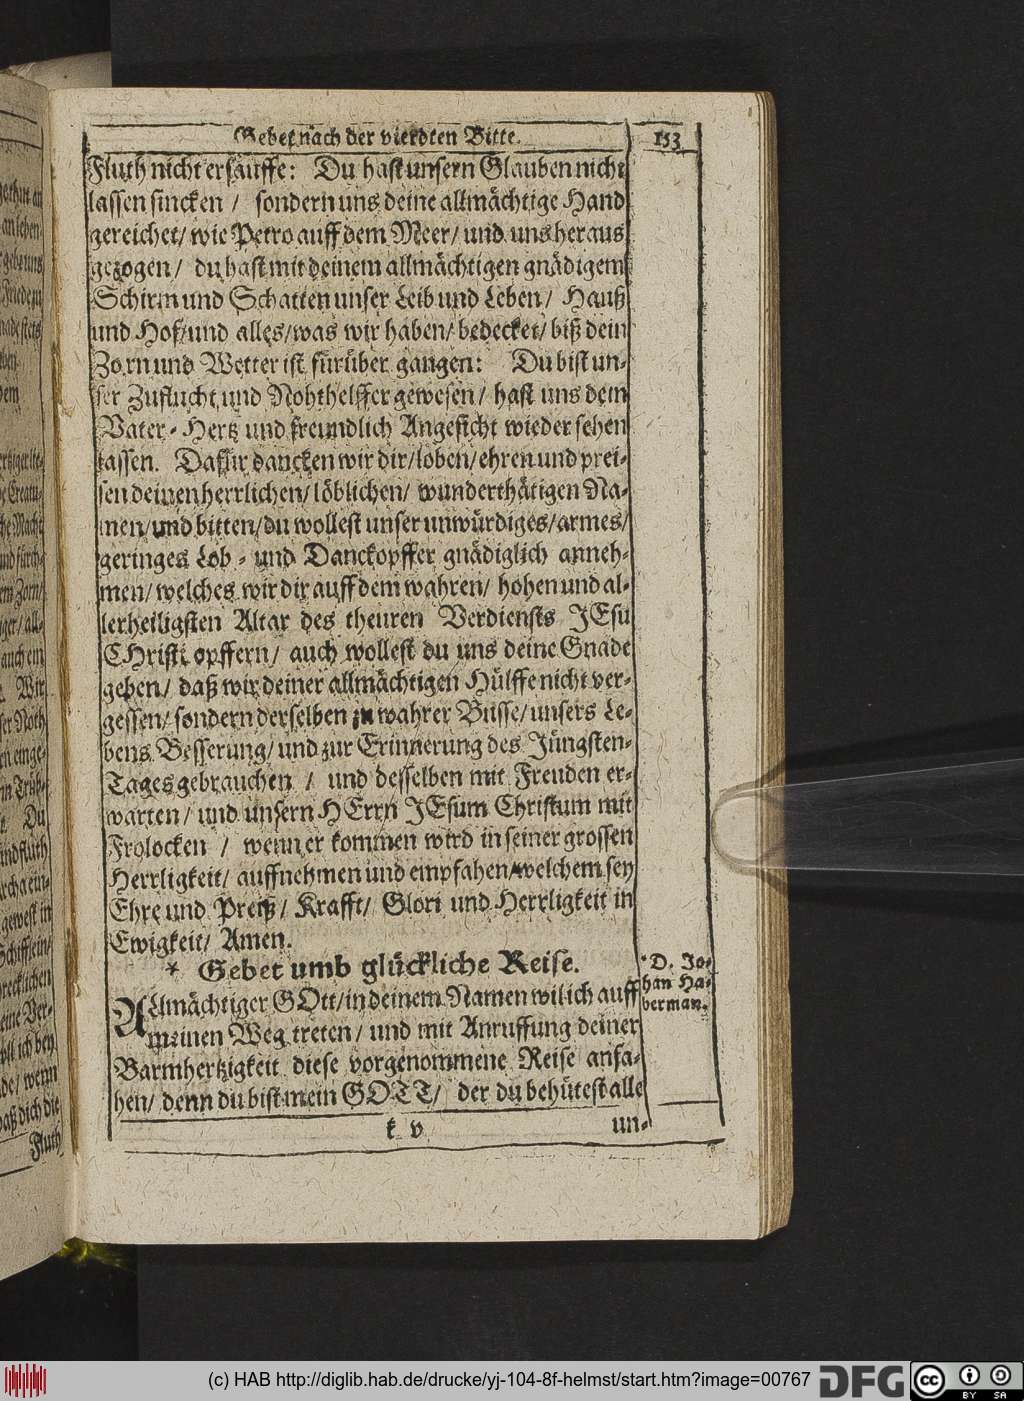 Gebet nach der vierdten Bitte. 153
Fluth nicht ersäuffe: Du hast unsern Glauben nicht
lassen sincken / sondern uns deine allmächtige Hand
gereichet/ wie Petro auff dem Meer/ und uns heraus
gezogen / du hast mit deinem allmächtigen gnädigem
Schirm und Schatten unser Leib und Leben / Hauß
und Hof/und alles/was wir haben/ bedecket/ biß dein
Zorn und Wetter ist fürüber gangen: Du bist un-
ser Zuflucht und Nohthelffer gewesen / hast uns dein
Vater-Hertz und freundlich Angesicht wieder sehen
lassen. Dafür dancken wir dir/loben/ehren und prei-
sen deinen herrlichen/ löblichen/ wunderthätigen Na-
men/und bitten/du wollest unser unwürdiges/armes/
geringes Lob- und Danckopffer gnädiglich anneh-
men/ welches wir dir auff dem wahren/ hohen und al-
lerheiligsten Altar des theuren Verdiensts JEsu
CHristi opffern/ auch wollest du uns deine Gnade
geben/ daß wir deiner allmächtigen Hülffe nicht ver-
gessen/ sondern derselben zu wahrer Busse/ unsers Le-
bens Besserung/ und zur Erinnerung des Jüngsten-
Tages gebrauchen / und desselben mit Freuden er-
warten/ und unsern HErrn JEsum Christum mit
Frolocken / wenn er kommen wird in seiner grossen
Herrligkeit/ auffnehmen und empfahen/welchem sey
Ehre und Preiß/ Krafft/ Glori und Herrligkeit in
Ewigkeit/ Amen.
* Gebet umb glückliche Reise.
*D. Jo-
han Ha-
berman.
ALlmächtiger GOtt/in deinem Namen wil ich auff
meinen Weg treten/ und mit Anruffung deiner
Barmhertzigkeit diese vorgenommene Reise anfa-
hen/ denn du bist mein GOTT/ der du behütest alle
k v un-
Fluth
(c) HAB http://diglib.hab.de/drucke/yj-104-8f-helmst/start.htm?image=00767
DFG
cc BY SA